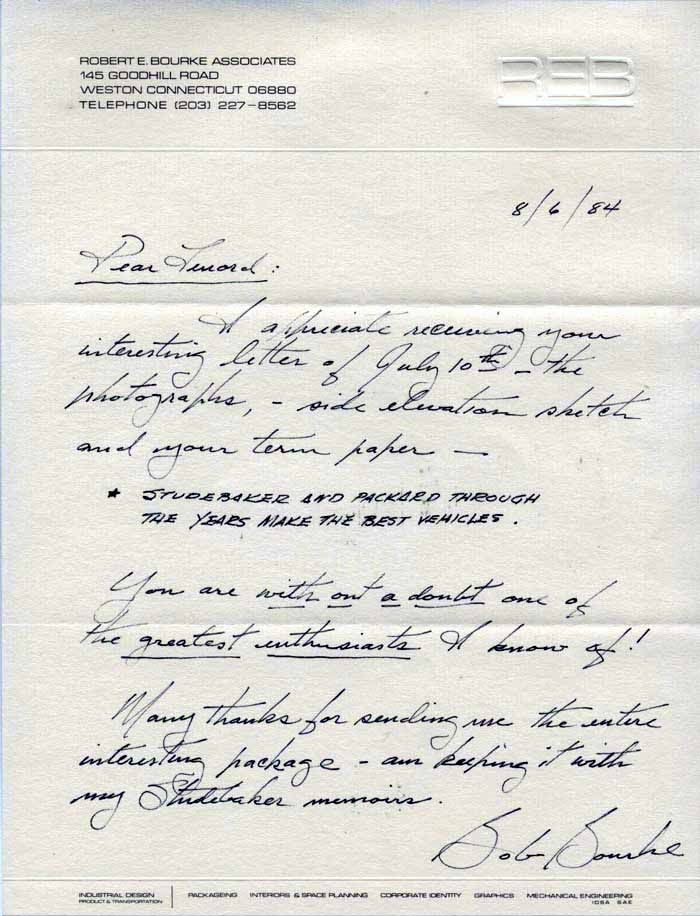 ROBERT E. BOURKE ASSOCIATES
145 GOODHILL ROAD
WESTON CONNECTICUT 06880
TELEPHONE (203) 227-8562
REB
8/6/84
Dear Lenord:
I appreciate receiving your
interesting letter of July 10th - the
photographs, - side elevation sketch
and your term paper —
* STUDEBAKER AND PACKARD THROUGH
THE YEARS MAKE THE BEST VEHICLES.
You are with out a doubt one of
the greatest enthusiasts I know of!
Many thanks for sending me the entire
interesting package - am keeping it with
my Studebaker memoirs.
Bob Bourke
INDUSTRIAL DESIGN
PRODUCT & TRANSPORTATION
PACKAGEING INTERIORS & SPACE PLANNING CORPORATE IDENTITY GRAPHICS MECHANICAL ENGINEERING
IDSA SAE